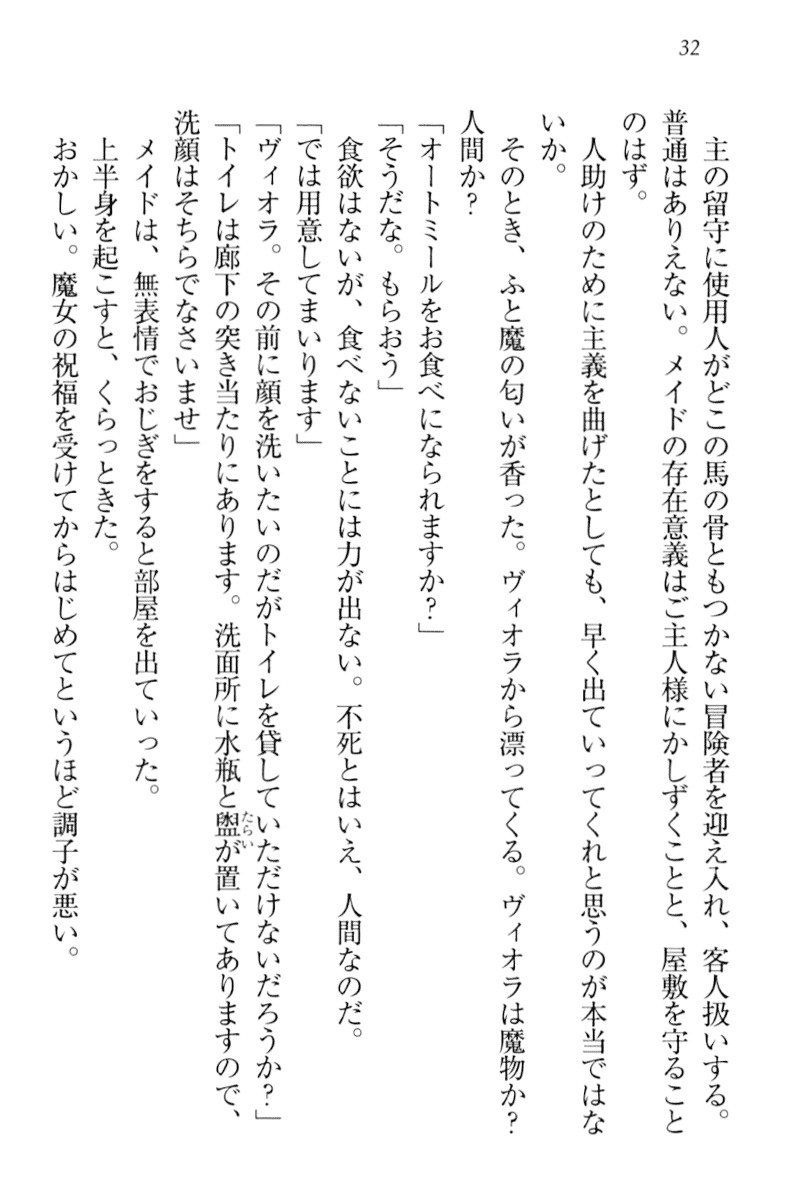 32
主の留守に使用人がどこの馬の骨ともつかない冒険者を迎え入れ、客人扱いする。
普通はありえない。メイドの存在意義はご主人様にかしずくことと、屋敷を守ること
のはず。
人助けのために主義を曲げたとしても、早く出ていってくれと思うのが本当ではな
いか。
そのとき、ふと魔の匂いが香った。ヴィオラから漂ってくる。ヴィオラは魔物か？
人間か？
「オートミールをお食べになられますか？」
「そうだな。もらおう」
食欲はないが、食べないことには力が出ない。不死とはいえ、人間なのだ。
「では用意してまいります」
「ヴィオラ。その前に顔を洗いたいのだがトイレを貸していただけないだろうか？」
「トイレは廊下の突き当たりにあります。洗面所に水瓶と盥たらいが置いてありますので、
洗顔はそちらでなさいませ」
メイドは、無表情でおじぎをすると部屋を出ていった。
上半身を起こすと、くらっときた。
おかしい。魔女の祝福を受けてからはじめてというほど調子が悪い。